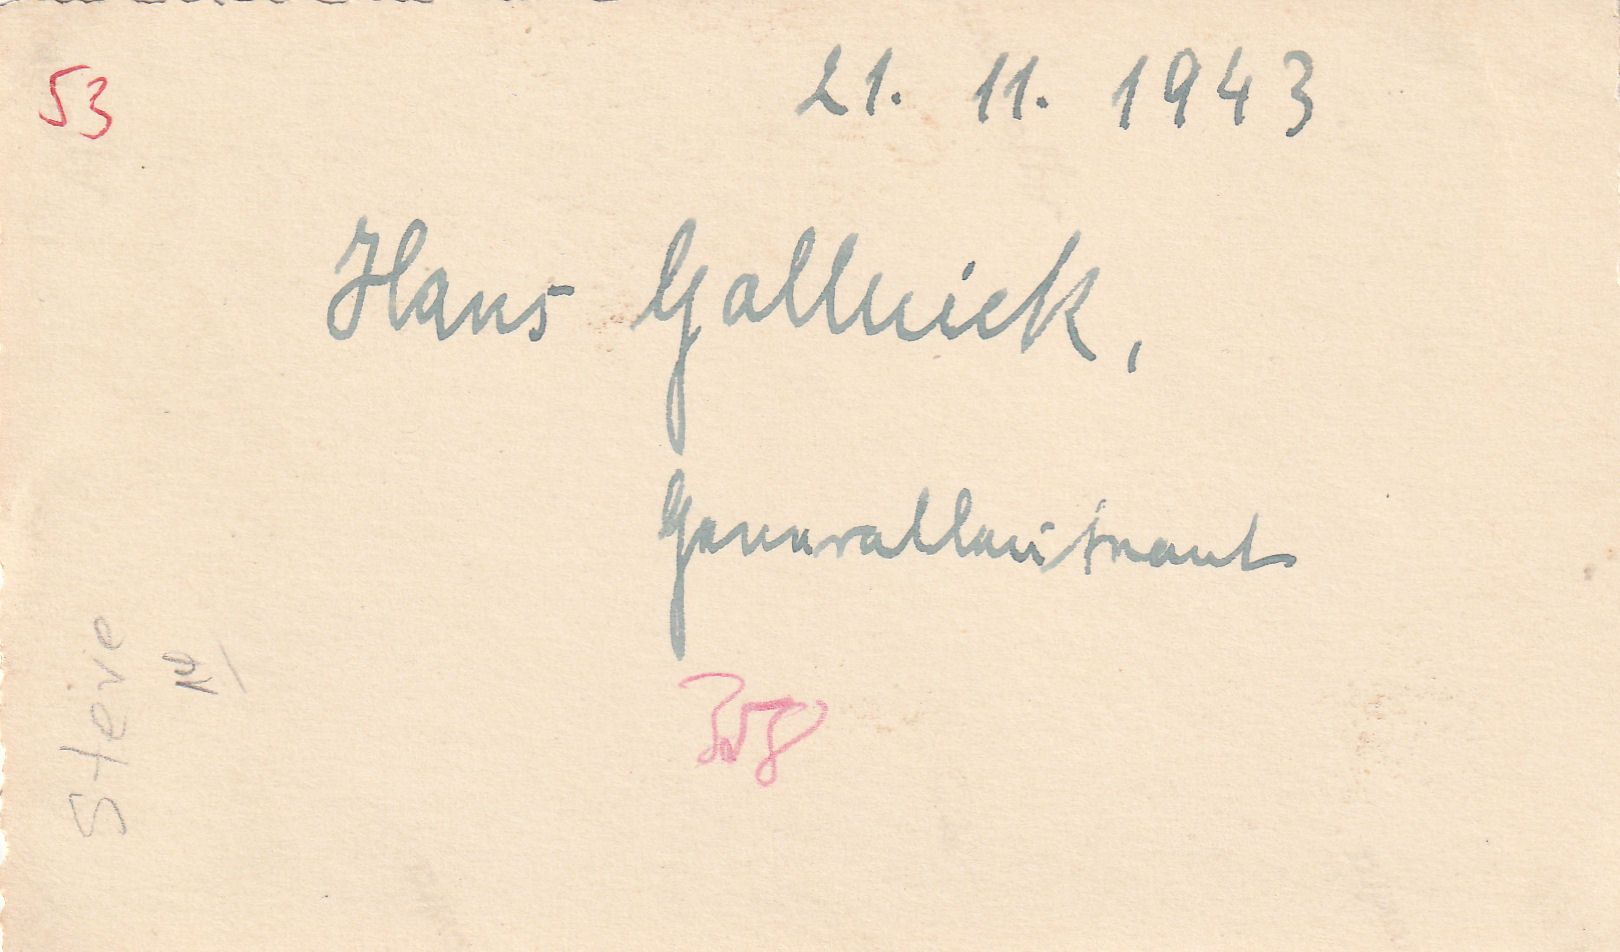 53
21. 11. 1943
Hans Gollnick,
Generalleutnant
Steve